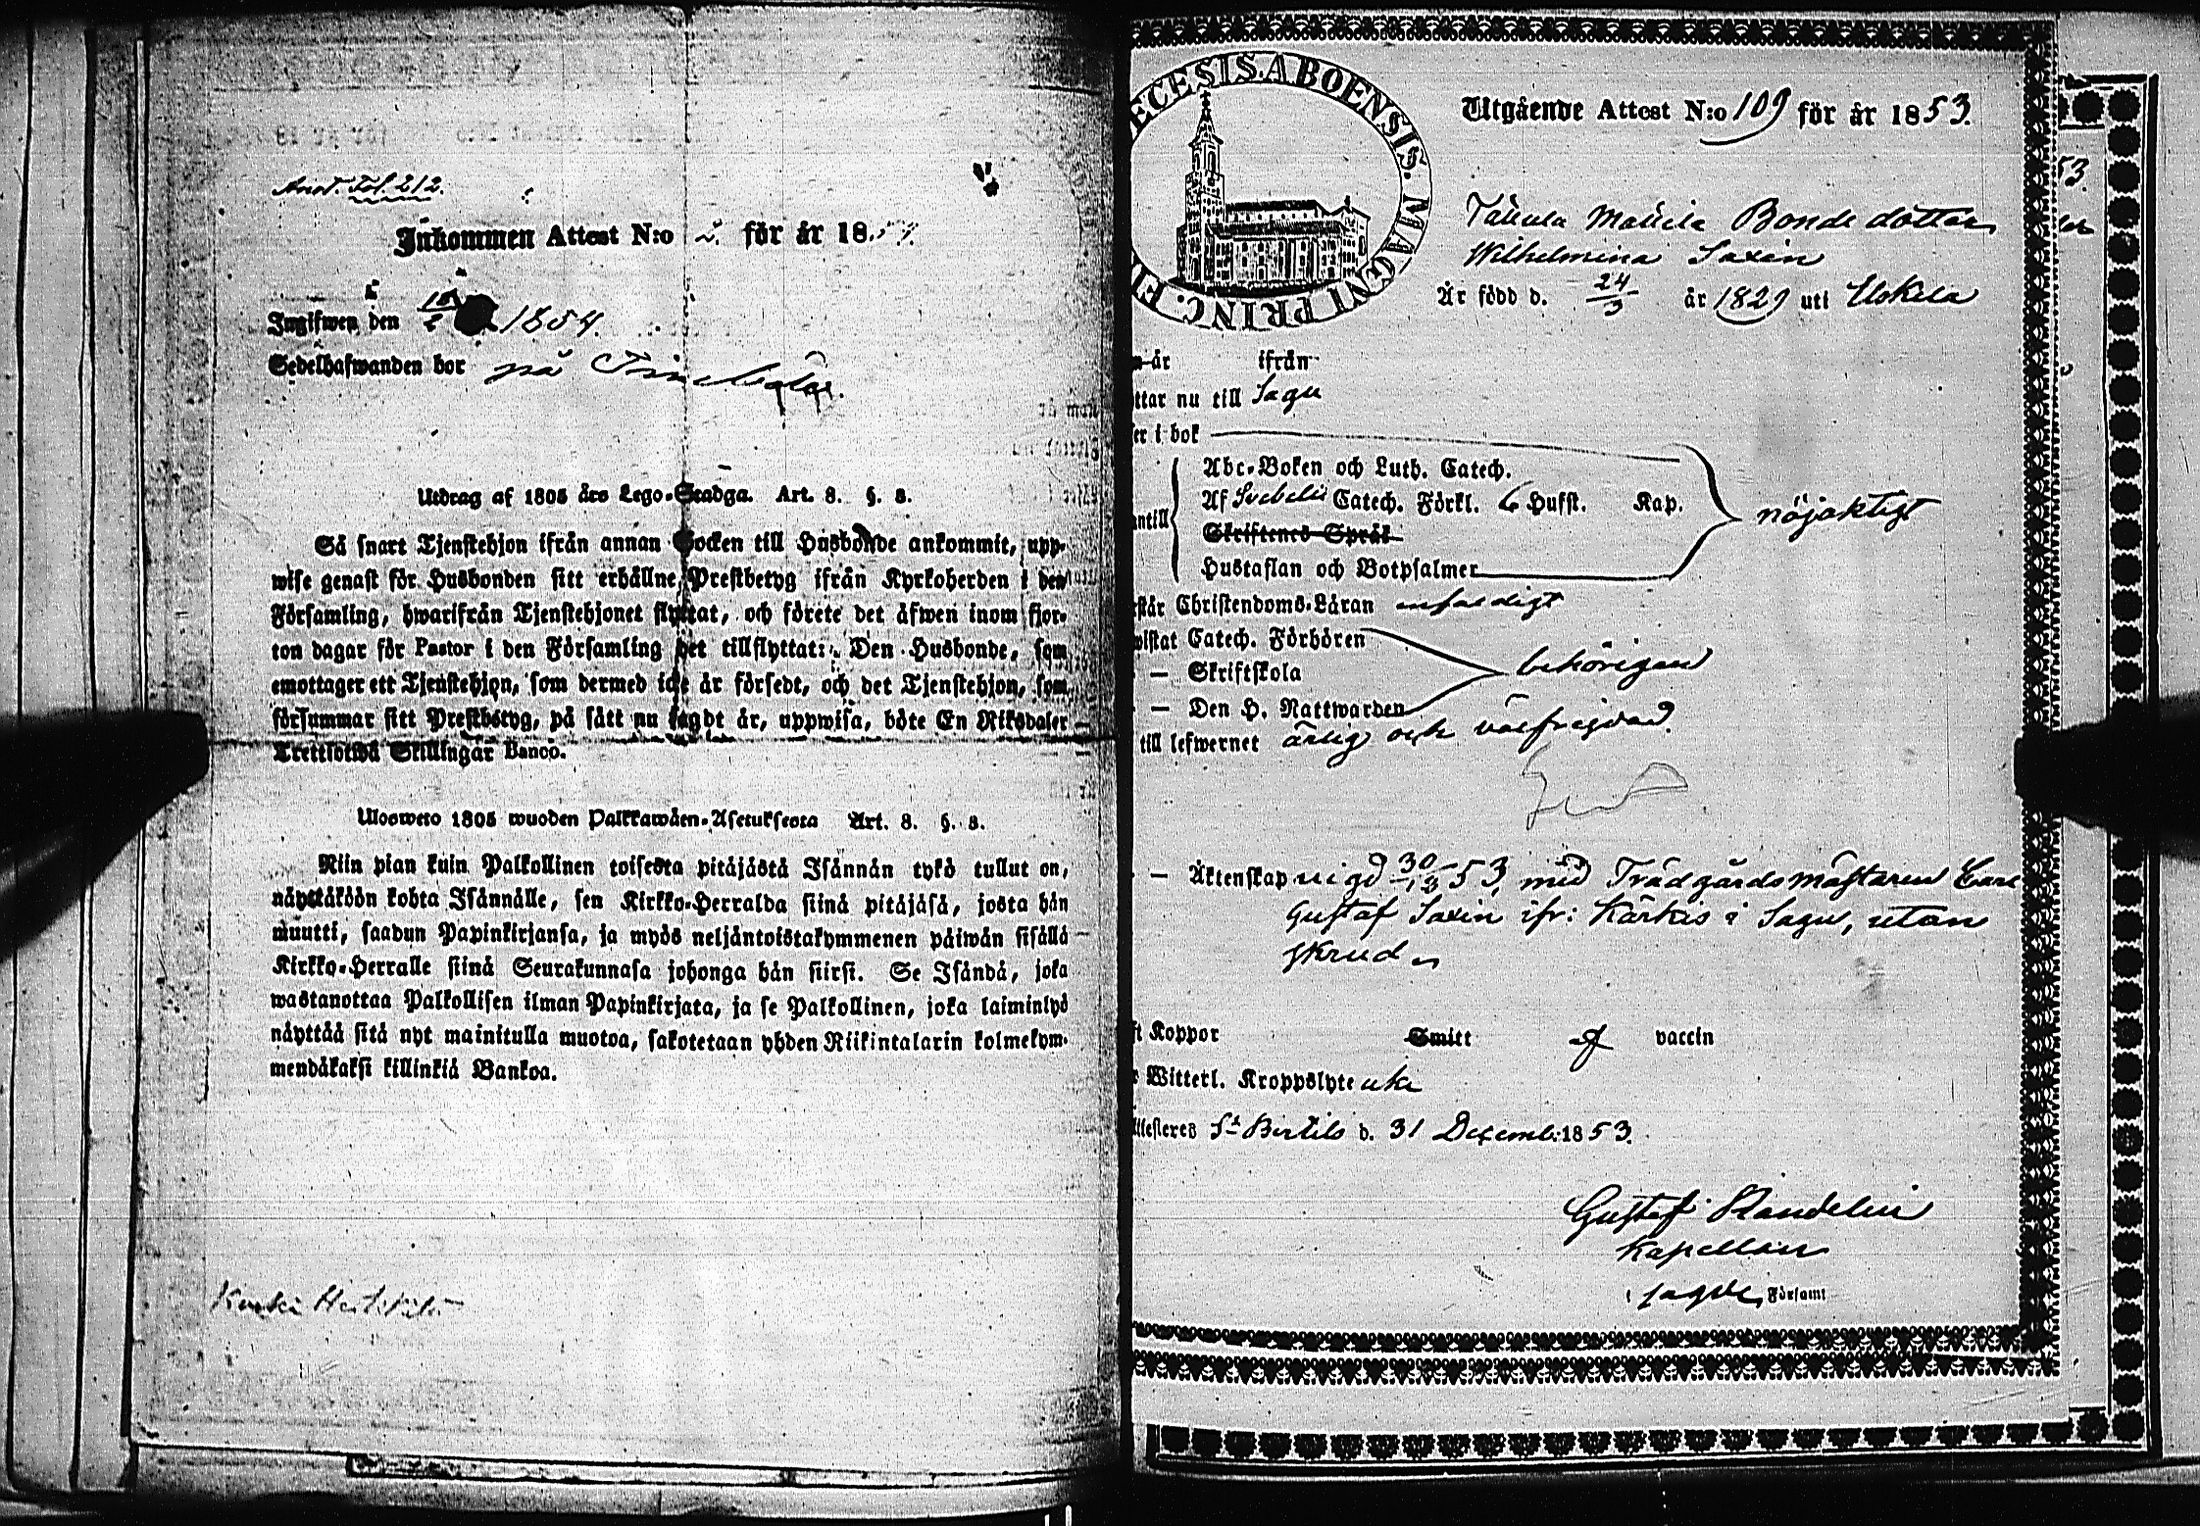 Anot. Fol. 212.
Inkommen Attest N:o 2. för år 1854.
Ingifwen den 10/2 1854.
Sedelhafwanden bor på
Utdrag af 1805 års Lego-Stadga. Art. 8. §. 8.
Så snart Tjenstehjon ifrån annan Socken till Husbonde ankommit, upp-
wise genast för Husbonden sitt erhållne Prestbetyg ifrån Kyrkoherden i den
Församling, hwarifrån Tjenstehjonet flyttat, och förete det äfwen inom fjor-
ton dagar för Pastor i den Församling det tillflyttat: Den Husbonde, som
emottager ett Tjenstehjon, som dermed icke är försedt, och det Tjenstehjon, som
försummar sitt Prestbetyg, på sätt nu sagdt är, uppwisa, böte En Riksdaler
Trettiotwå Skillingar Banco.
Ulosweto 1805 wuoden Palkkawäen-Asetuksesta Art. 8. §. 8.
Niin pian kuin Palkollinen toisesta pitäjästä Isännän tykö tullut on,
näyttäköön kohta Isännälle, sen Kirkko-Herralda siinä pitäjäsä, josta hän
muutti, saadun Papinkirjansa, ja myös neljäntoistakymmenen päiwän sisällä
Kirkko-Herralle siinä Seurakunnasa johonga hän siirsi. Se Isändä, joka
wastanottaa Palkollisen ilman Papinkirjata, ja se Palkollinen, joka laiminlyö
näyttää sitä nyt mainitulla muotoa, sakotetaan yhden Riikintalarin kolmekym-
mendäkaksi killinkiä Bankoa.
ECESIS. ABOENSIS. MAGNI PRINC. FI
Utgående Attest N:o 109 för år 1853.
Bonde dottren
Wilhelmina Saxén
Är född d. 24/3 år 1829 uti Uskela
år ifrån
ttar nu till Sagu
er i bok
antill
Abc-Boken och Luth. Catech.
Af Svebelii Catech. Förkl. 6 Hufst. Kap.
Skriftenes Språk
Hustaflan och Botpsalmer
nöjaktigt
står Christendoms-Läran enfaldigt
wistat Catech. Förhören
— Skriftskola
— Den H. Nattwarden
behörigen
till lefwernet ärlig och välfrejdad.
— Äktenskap vigd 30/12 53, med Trädgårdsmästaren Carl
Gustaf Saxén ifr: Kärkis i Sagu, utan
skrud
ft Koppor Smitt af vaccin
Witterl. Kroppslyte utan
ttesteres St Bertils d. 31 Decemb: 1853.
Gustaf Randelin
Kapellan
i sagde Församl